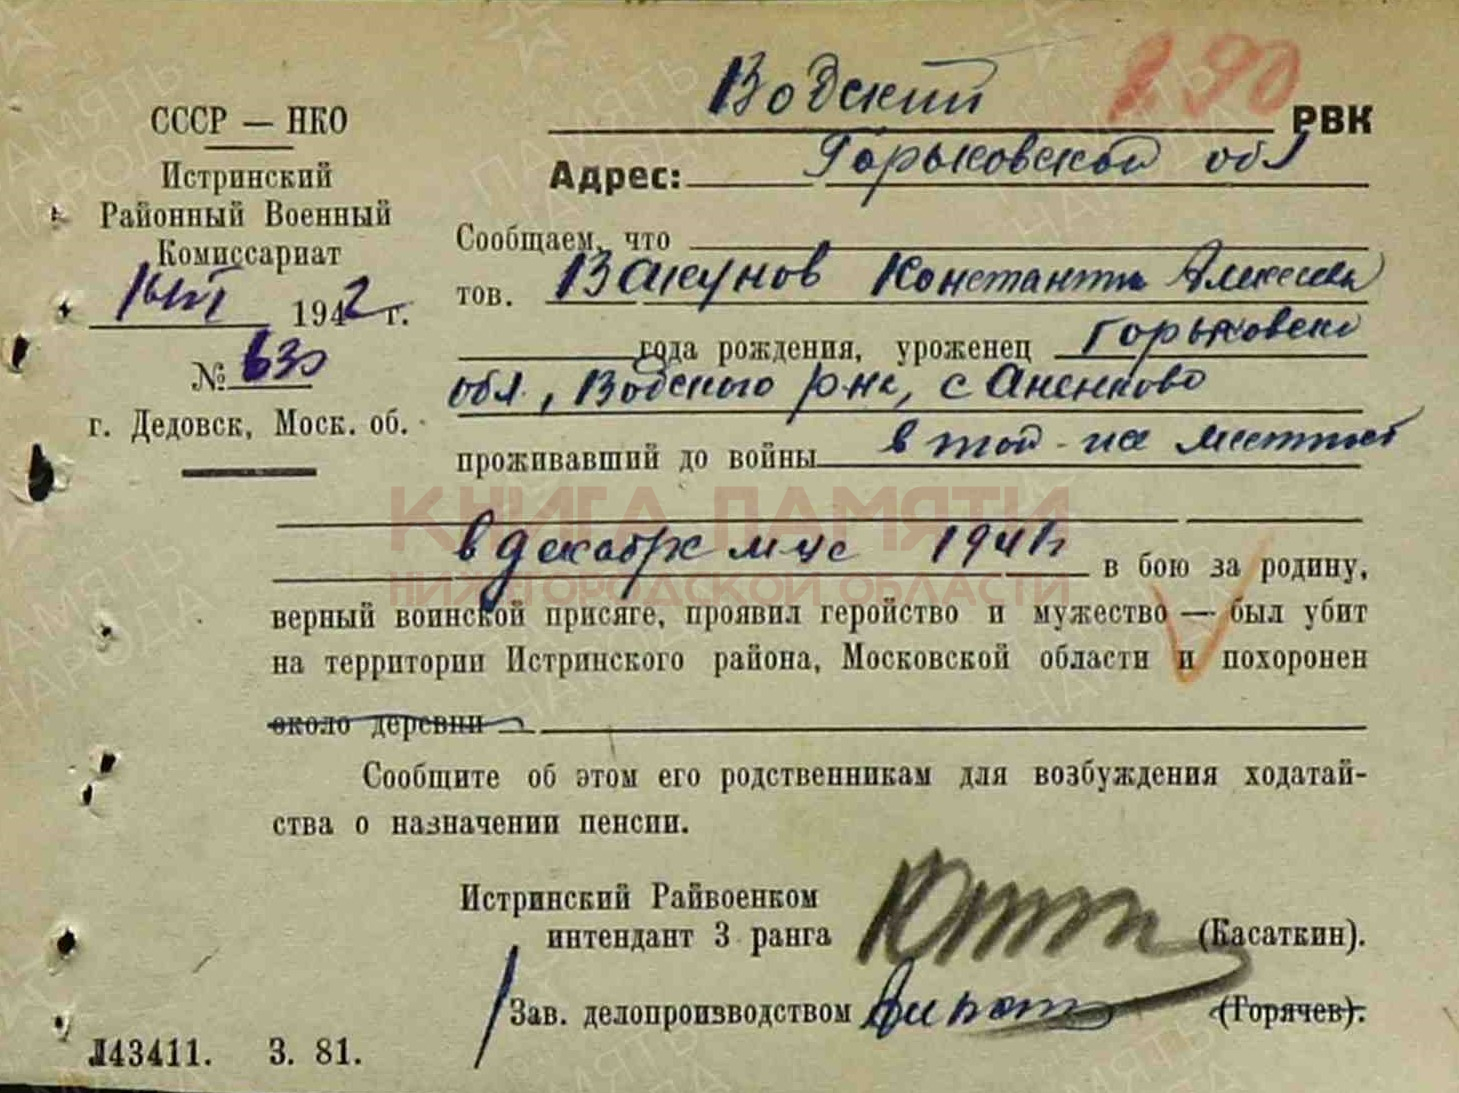 Водский РВК
290
СССР — НКО
Истринский
Районный Военный
Комиссариат
1942 г.
№ 630
г. Дедовск, Моск. об.
Адрес: Горьковской обл
Сообщаем, что
тов. Вакунов Константин Алексеев
года рождения, уроженец Горьковско
обл, Водского р-на, с Аненково
проживавший до войны в той-же местност
КНИГА ПАМЯТИ
НИЖГОРОДСКОЙ ОБЛАСТИ
в декабре м-це 1941 г. в бою за родину,
верный воинской присяге, проявил геройство и мужество — был убит
на территории Истринского района, Московской области и похоронен
около деревни
Сообщите об этом его родственникам для возбуждения ходатай-
ства о назначении пенсии.
Истринский Райвоенком
интендант 3 ранга (Касаткин).
Зав. делопроизводством (Горячев).
Л43411. З. 81.
ПАМЯТЬ
НАРОДА